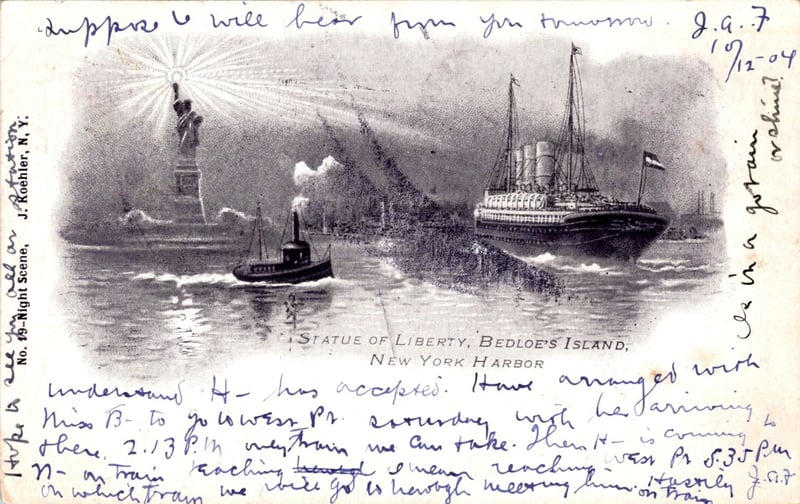 Suppose I will hear from you tomorrow. J.A.F
10/12-04
No. 19-Night Scene, J. Koehler, N. Y.
STATUE OF LIBERTY, BEDLOE'S ISLAND,
NEW YORK HARBOR
understand H- has accepted. Have arranged with
Miss B- to go to West Pt. Saturday with her arriving
there, 2.13 P.M only train we can take. Then H- is coming to
N- on train reaching I mean reaching West Pt 5.35 P.M
on which train we will go to Newbgh meeting him on train. Hastily J.A.F
Hope to see you all at station
in a got rain
or shine!